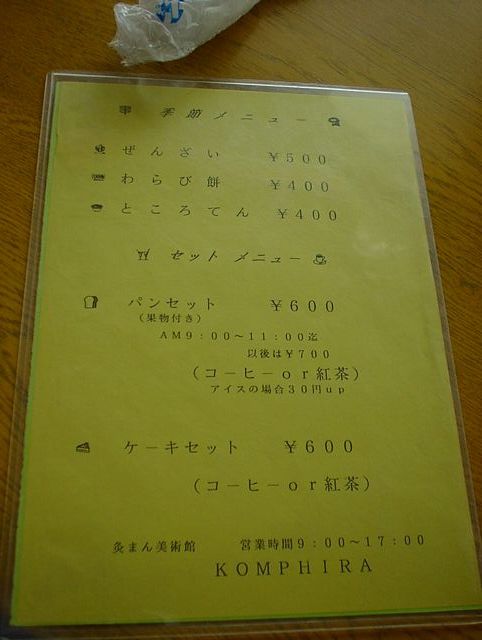 季節メニュー
ぜんざい ¥500
わらび餅 ¥400
ところてん ¥400
セットメニュー
パンセット ¥600
(果物付き)
AM9:00〜11:00迄
以後は¥700
(コーヒーor紅茶)
アイスの場合30円up
ケーキセット ¥600
(コーヒーor紅茶)
灸まん美術館 営業時間9:00〜17:00
KOMPHIRA